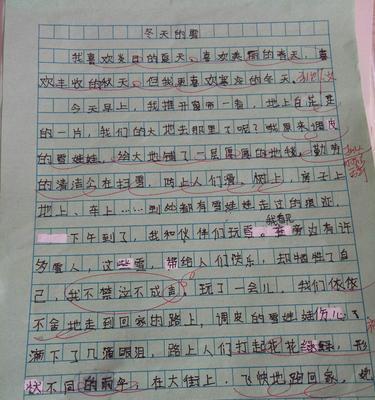 冬天的雪
我喜欢炎日的夏天、喜欢美丽的春天,喜
欢丰收的秋天。但我更喜欢寒冷的冬天。
今天早上,我推开窗帘一看,地上白茫茫
的一片,我们的大地去那里了呢?哦原来调皮
的雪娃娃,给大地铺了一层厚厚的地毯。勤劳
的清洁公在扫雪,路上人们滑,树上,房子上
地上、车上……到处都有雪娃娃走过的痕迹。
下午到了,我和伙伴们玩雪。旁边有许
我看见
多雪人,这些雪,带给人们快乐,却牺牲了自
己,我不禁泣不成声。玩了一会儿,我们依依
不舍地走到回家的路上,调皮的雪娃娃伤心
滴下了几滴眼泪,路上人们打起花花绿绿,形
状不同的雨伞。在大街上,飞快地跑回家,